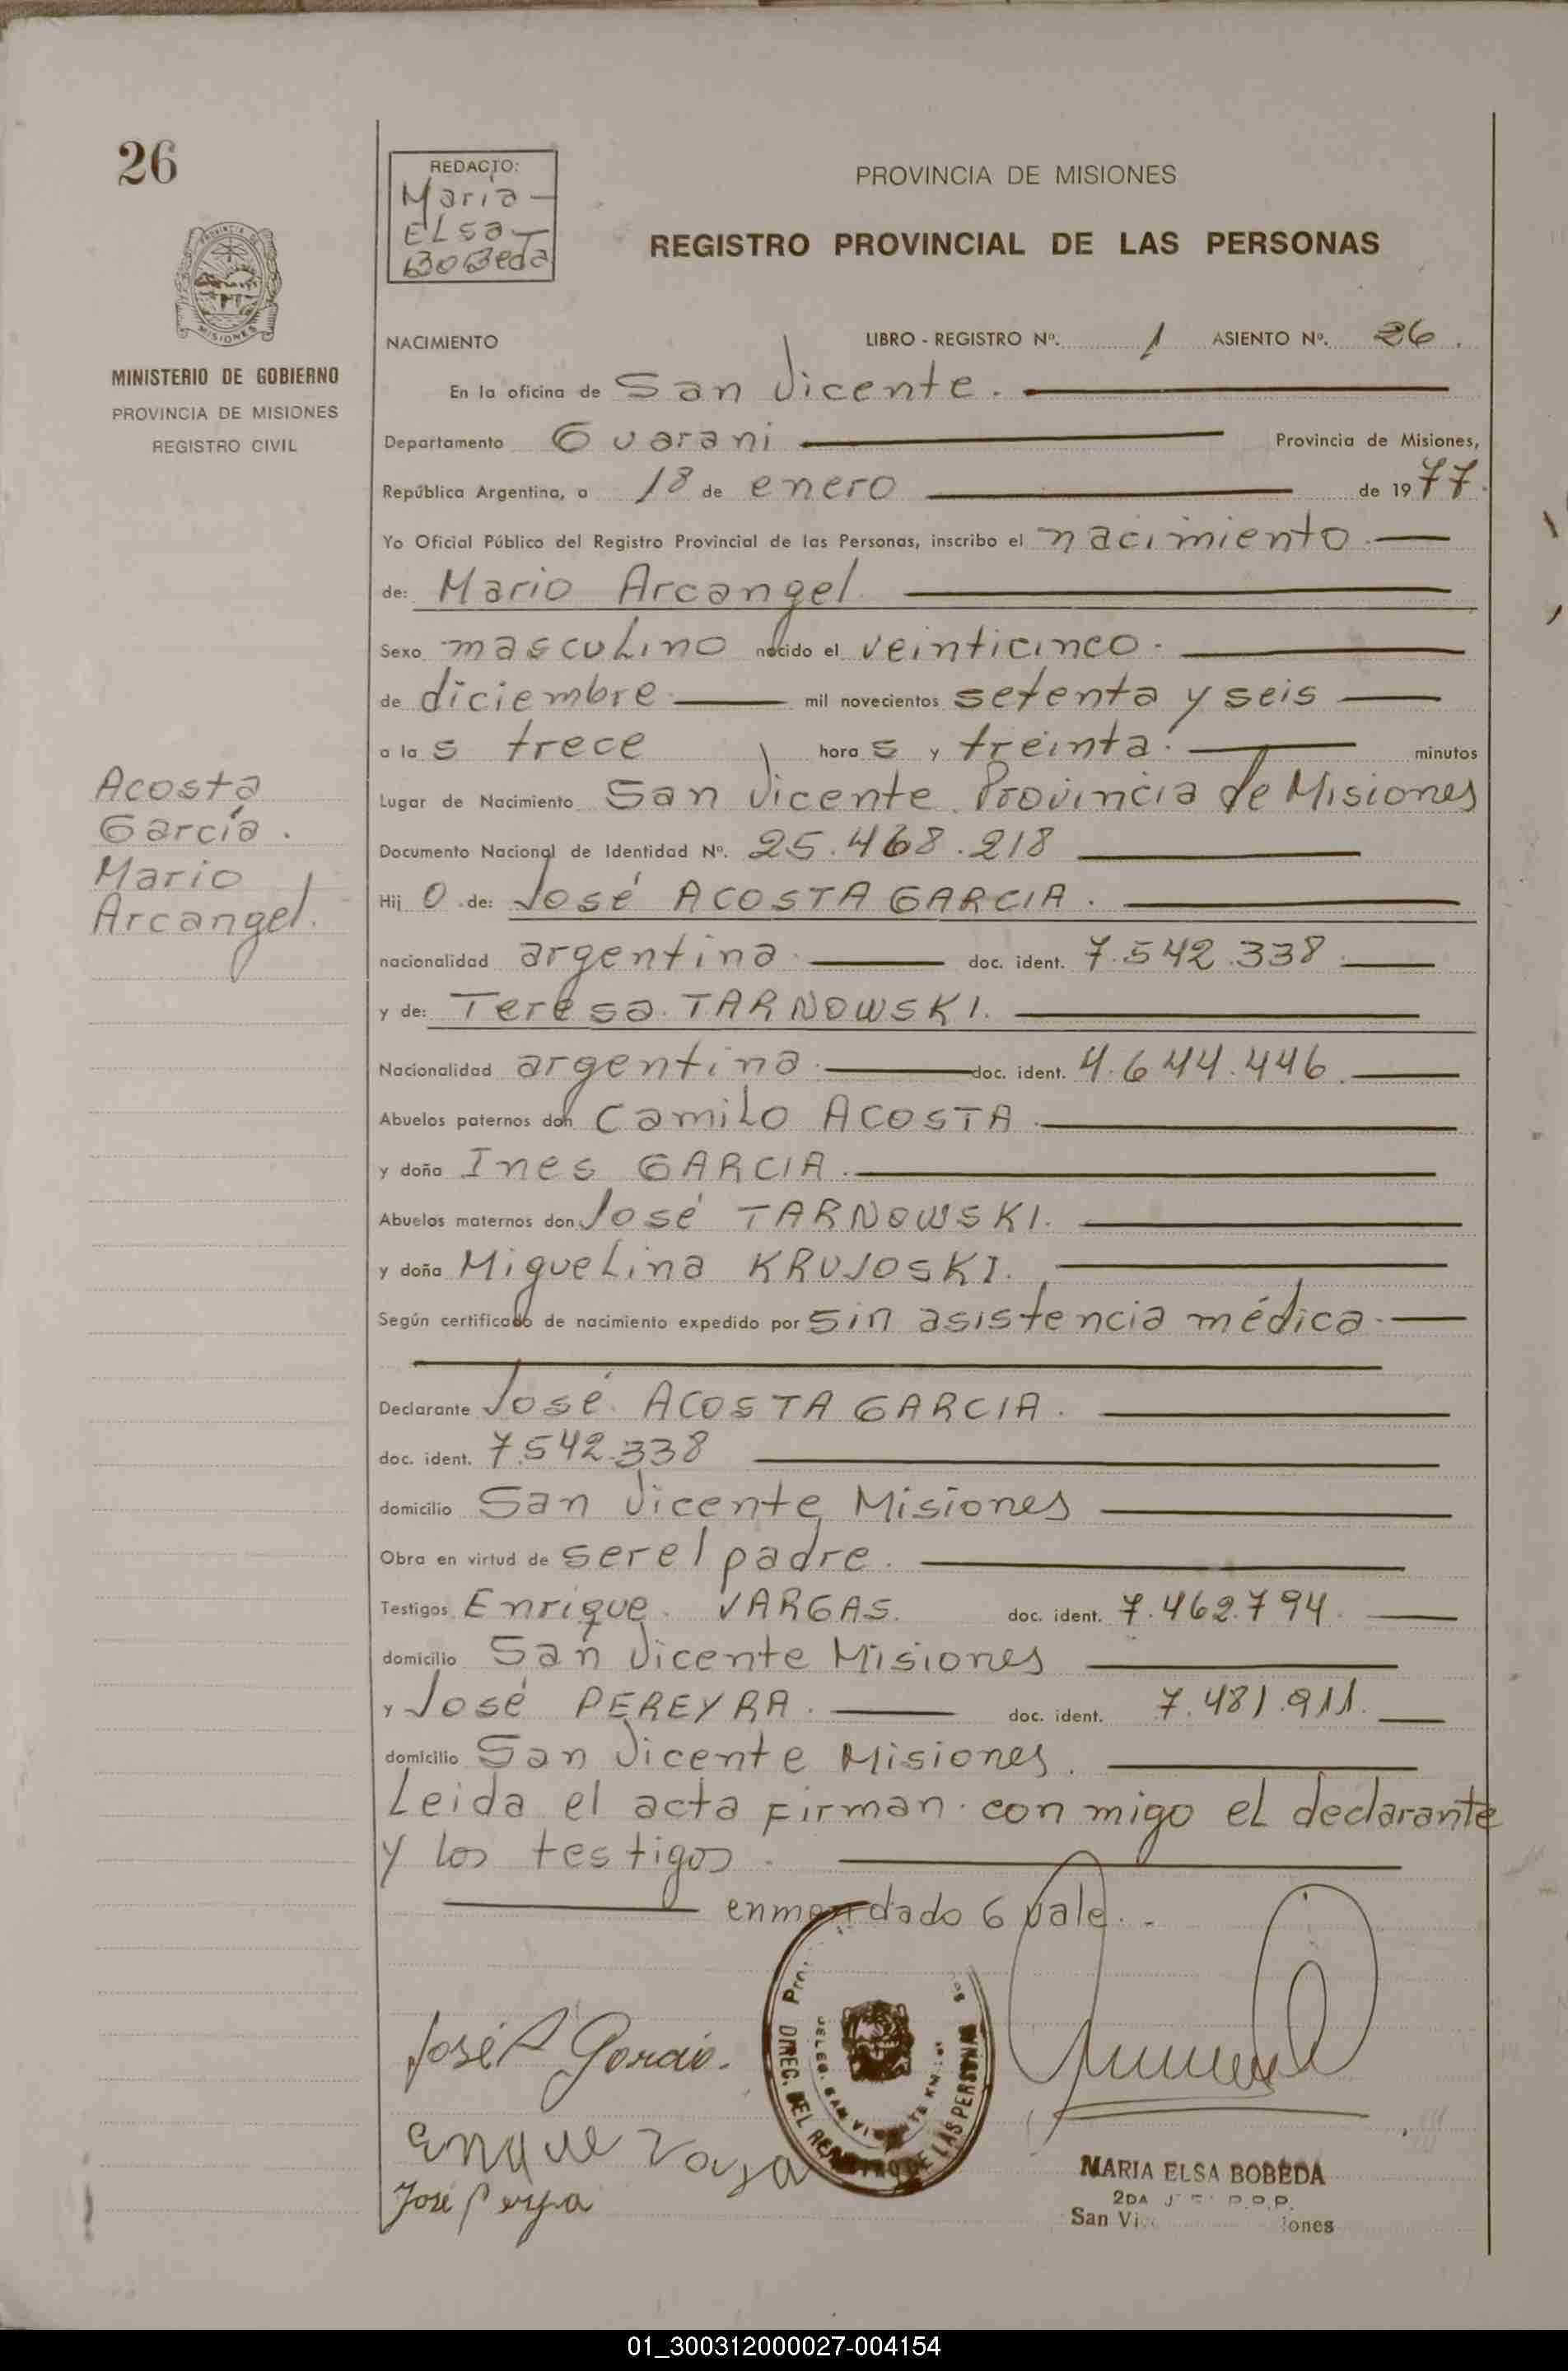 26
REDACTO:
María
ELsa
BoBeda
PROVINCIA DE MISIONES
REGISTRO PROVINCIAL DE LAS PERSONAS
PROVINCIA DE
MISIONES
MINISTERIO DE GOBIERNO
PROVINCIA DE MISIONES
REGISTRO CIVIL
NACIMIENTO LIBRO - REGISTRO Nº. 1 ASIENTO Nº. 26.
En la oficina de San Vicente.
Departamento Guarani Provincia de Misiones,
República Argentina, a 18 de enero de 1977.
Yo Oficial Público del Registro Provincial de las Personas, inscribo el nacimiento.
de: Mario Arcangel.
Sexo masculino nacido el veinticinco.
de diciembre mil novecientos setenta y seis
a las trece horas y treinta. minutos
Lugar de Nacimiento San Vicente. Provincia de Misiones
Documento Nacional de Identidad Nº. 25.468.218
Hijo de: José ACOSTA GARCIA.
Acosta
García.
Mario
Arcangel.
nacionalidad argentina doc. ident. 7.542.338
y de: Teresa TARNOWSKI.
Nacionalidad argentina. doc. ident. 4.644.446.
Abuelos paternos don Camilo ACOSTA.
y doña Ines GARCIA.
Abuelos maternos don José TARNOWSKI.
y doña Miguelina KRUJOSKI.
Según certificado de nacimiento expedido por sin asistencia médica.
Declarante José ACOSTA GARCIA.
doc. ident. 7.542.338
domicilio San Vicente Misiones
Obra en virtud de ser el padre.
Testigos Enrique VARGAS. doc. ident. 7.462.794.
domicilio San Vicente Misiones
y José PEREYRA. doc. ident. 7.481.911.
domicilio San Vicente Misiones.
Leida el acta firman con migo el declarante
y los testigos.
enmendado 6 vale.-
José A Garcia.
Enrique
José
DIREC. DEL REGISTRO DE LAS PERSONAS
MARIA ELSA BOBEDA
2DA
San Vi iones
01_300312000027-004154